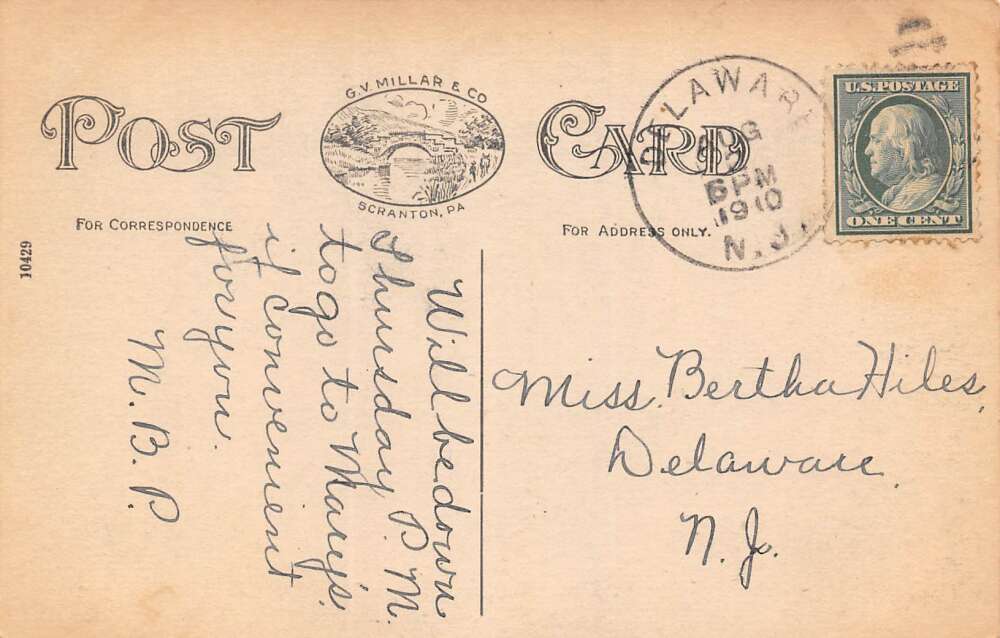 POST CARD
G.V. MILLAR & CO
SCRANTON, PA
FOR CORRESPONDENCE
FOR ADDRESS ONLY.
10429
DELAWARE
AUG
6 PM
1910
N.J.
U.S. POSTAGE
ONE CENT
Will be down
Thursday P.M.
to go to Mary's
if convenient
for you.
M. B. P.
Miss. Bertha Hiles,
Delaware
N. J.